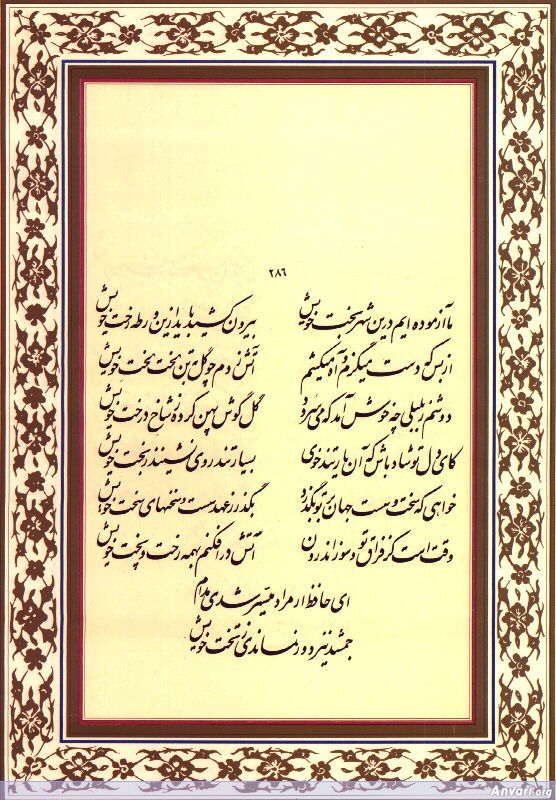 ۲۸۶
ما آزموده ایم درین شهر بخت خویش بیرون کشید باید ازین ورطه رخت خویش
از بس که دست میگزم و آه میکشم آتش زدم چو گل بتن لخت لخت خویش
دوشم ز بلبلی چه خوش آمد که می سرود گل گوش پهن کرده ز شاخ درخت خویش
کای دل تو شاد باش که آن یار تند خوی بسیار تند روی نشیند ز بخت خویش
خواهی که سخت و سست جهان بر تو بگذرد بگذر ز عهد سست و سخنهای سخت خویش
وقت است کز فراق تو وز سوز اندرون آتش در افکنم بهمه رخت و پخت خویش
ای حافظ ار مراد میسّر شدی مدام
جمشید نیز دور نماندی ز تخت خویش
Anvari.org